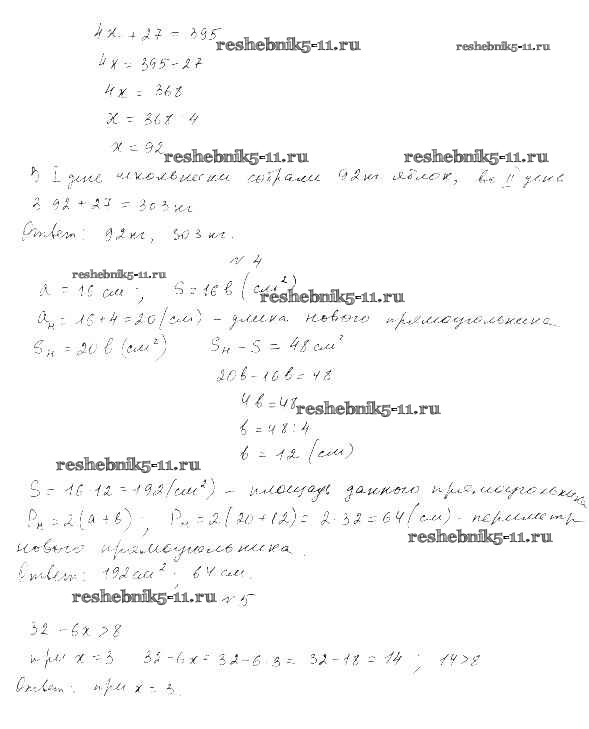 4x + 27 = 395
reshebnik5-11.ru
reshebnik5-11.ru
4x = 395 - 27
4x = 368
x = 368 4
x = 92
reshebnik5-11.ru
reshebnik5-11.ru
В I день школьники собрали 92кг яблок, во II день
3 92 + 27 = 303 кг
Ответ: 92кг, 303 кг.
№ 4
reshebnik5-11.ru
a = 16 см; S = 16 b (см²)
reshebnik5-11.ru
aн = 16 + 4 = 20 (см) - длина нового прямоугольника
Sн = 20 b (см²) Sн - S = 48 см²
20b - 16b = 48
4b = 48
reshebnik5-11.ru
b = 48 : 4
b = 12 (см)
reshebnik5-11.ru
S = 16 12 = 192 (см²) - площадь данного прямоугольника
Pн = 2 (a + b), Pн = 2 (20 + 12) = 2 · 32 = 64 (см) - периметр
reshebnik5-11.ru
нового прямоугольника.
Ответ: 192 см²; 64 см.
reshebnik5-11.ru
№ 5
32 - 6x > 8
при x = 3 32 - 6x = 32 - 6 · 3 = 32 - 18 = 14; 14 > 8
Ответ: при x = 3.